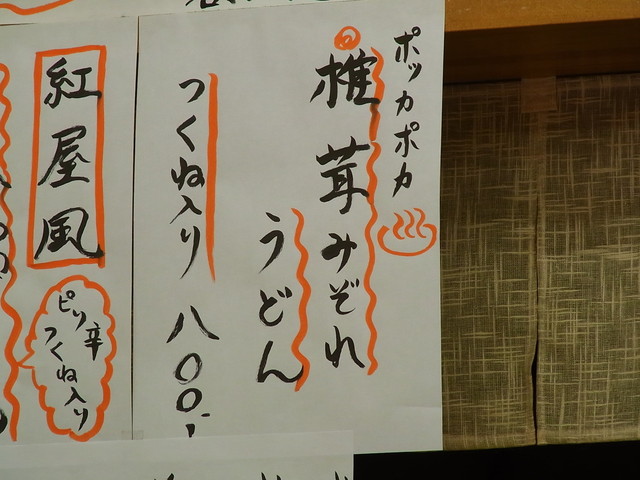 ポッカポカ
椎茸みぞれ
うどん
つくね入り 八〇〇-
紅屋風
ピリ辛
つくね入り